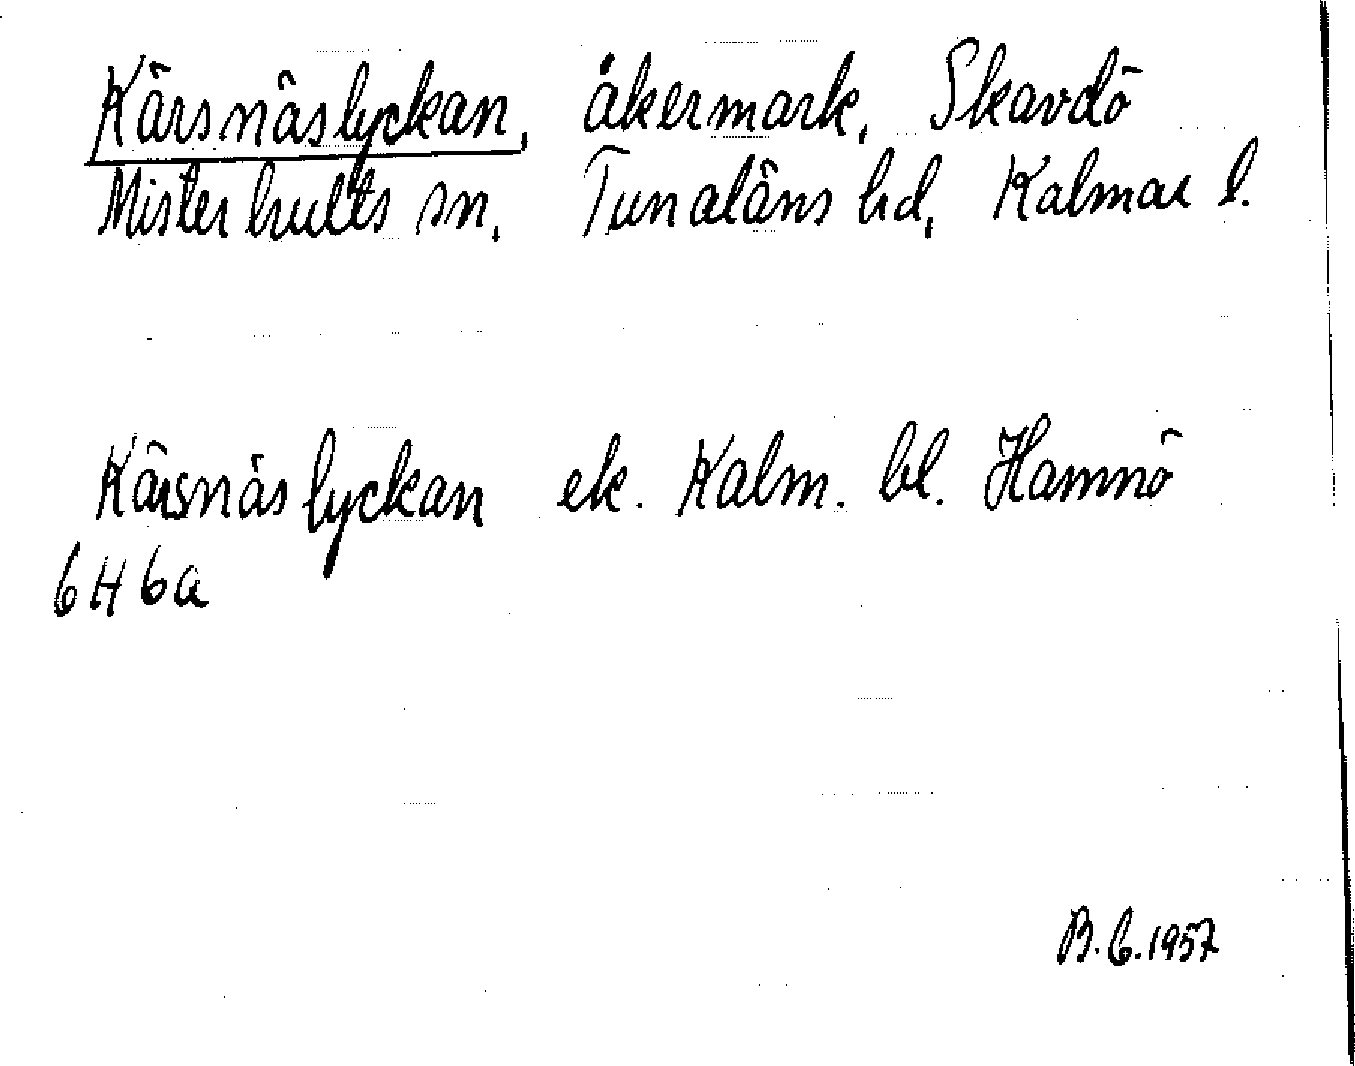 Kärsnäslyckan, åkermark, Skavdö
Misterhults sn, Tunaläns hd, Kalmar l.
Kärsnäslyckan ek. Kalm. bl. Hamnö
6H6a
B.G.1957